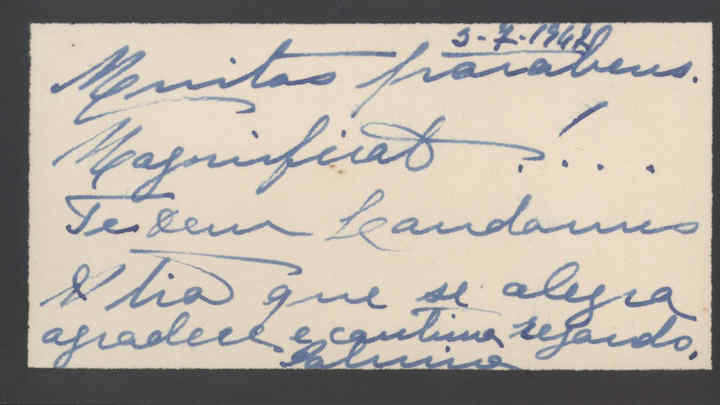 3-7-1942
Muitas parabens.
Magnificat!...
Te Deum Laudamus
A tia que se alegra
agradece e continua resando.